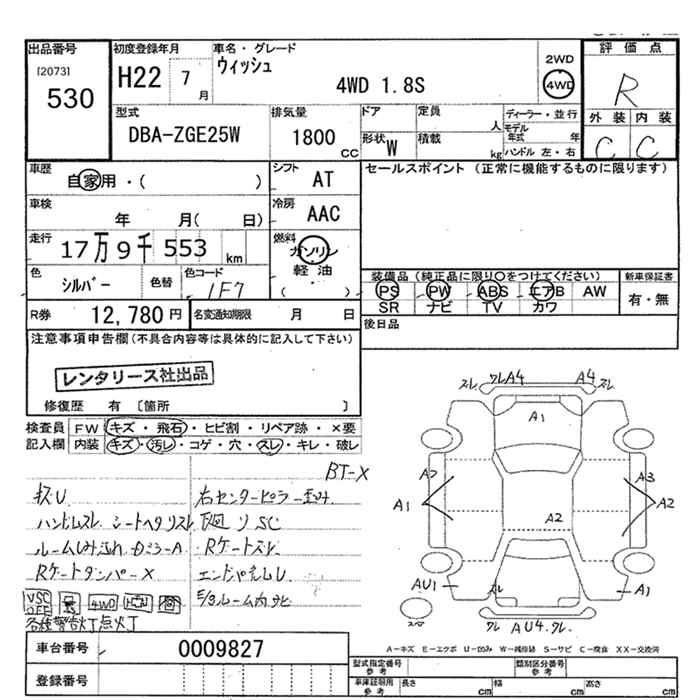 出品番号
[2073]
530
初度登録年月
H22 7月
車名・グレード
ウィッシュ
4WD 1.8S
2WD
4WD
評価点
R
外装 内装
C C
型式
DBA-ZGE25W
排気量
1800 CC
ドア
定員 人
ディーラー・並行
モデル年式 年
形状 W
積載 kg
ハンドル 左・右
車歴
自家用・( )
シフト AT
セールスポイント (正常に機能するものに限ります)
車検
年 月( 日)
冷房 AAC
走行
17万9千553 km
燃料
ガソリン
軽油
( )
色
シルバー
色替
色コード
1F7
装備品(純正品に限り○をつけてください)
PS PW ABS エアB AW
SR ナビ TV カワ
新車保証書
有・無
R券 12,780円
名変通知期限 月 日
後日品
注意事項申告欄(不具合内容等は具体的に記入して下さい)
レンタリース社出品
修復歴 有 [箇所 ]
検査員記入欄
FW キズ・飛石・ヒビ割・リペア跡・×要
内装 キズ・汚レ・コゲ・穴・スレ・キレ・破レ
BT-X
右センターピラー歪み
ハンドルスレ シートヘタリスレ
Rゲートスレ
Rゲートダンパー×
VSC OFF
4WD
各種警告灯点灯
スレ クレ A4 A4 スレ
A1
A2 A3
A1 A2
A2
AU1 スレ A1
クレ AU4.クレ
A－キズ E－エクボ U－凹み W－補修跡 S－サビ C－腐食 XX－交換済
車台番号 0009827
登録番号
型式指定番号 参考
類別区分番号 参考
車庫証明用 参考
長さ cm
幅 cm
高さ cm